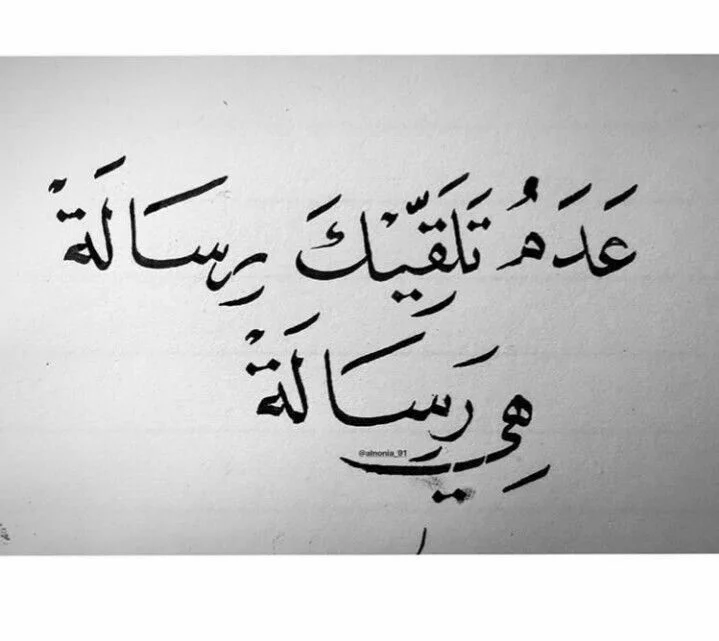 عَدَمُ تَلَقِّيْكَ رِسَالَةْ
هِيَ رِسَالَةْ
@alnonia_91